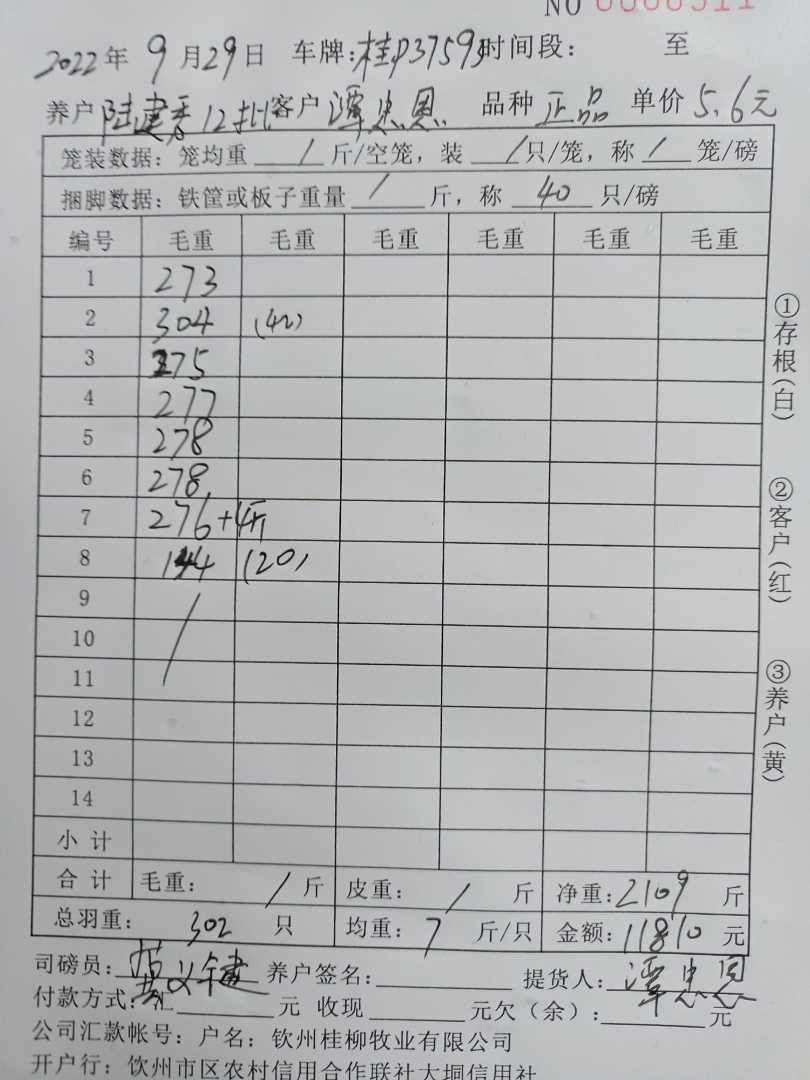 NO 0000511
2022年 9月29日 车牌:桂P37593 时间段: 至
养户 陆建香12批 客户 谭忠恩 品种 正品 单价 5.6元
笼装数据: 笼均重 / 斤/空笼, 装 / 只/笼, 称 / 笼/磅
捆脚数据: 铁筐或板子重量 / 斤, 称 40 只/磅
编号 毛重 毛重 毛重 毛重 毛重 毛重
1 273
2 304 (42)
3 275
4 277
5 278
6 278
7 276+4斤
8 144 (20)
9 /
10
11
12
13
14
小计
合计 毛重: / 斤 皮重: / 斤 净重: 2109 斤
总羽重: 302 只 均重: 7 斤/只 金额: 11810 元
司磅员: 养户签名: 提货人: 谭忠恩
付款方式:汇 元 收现 元欠(余): 元
公司汇款帐号: 户名: 钦州桂柳牧业有限公司
开户行: 钦州市区农村信用合作联社大垌信用社
①存根(白)
②客户(红)
③养户(黄)